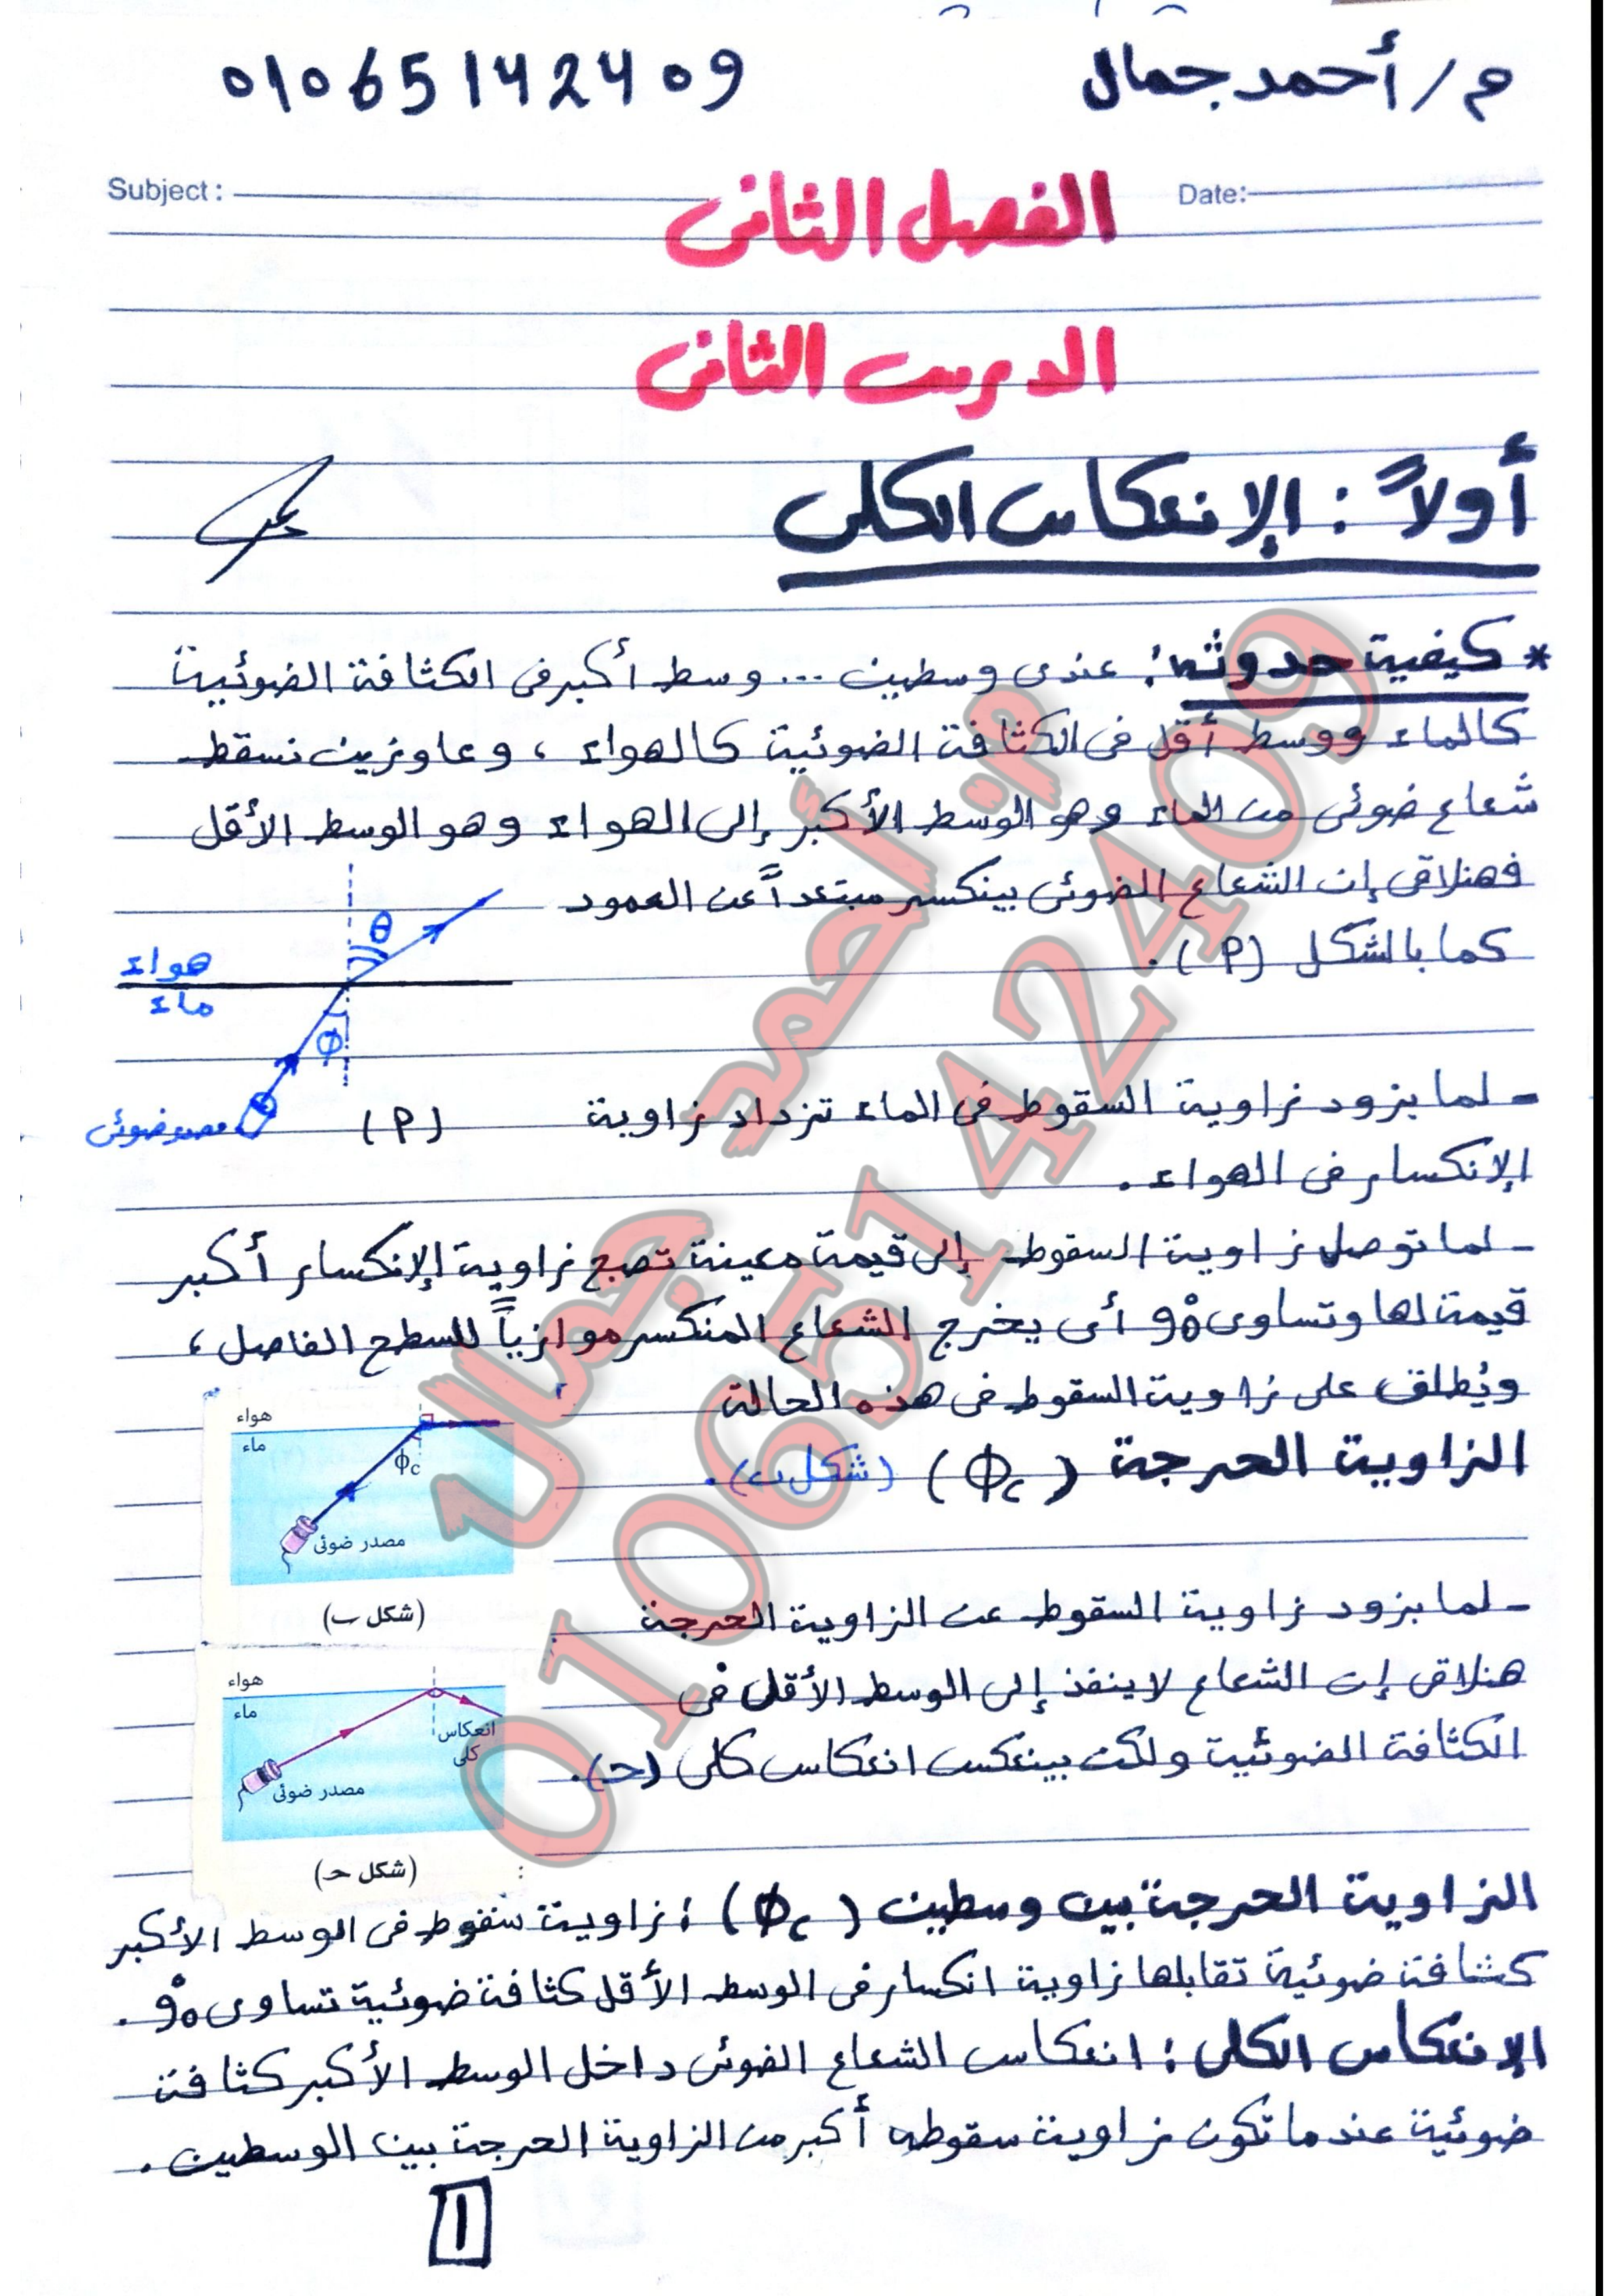 م/ أحمد جمال
01065142409
Subject:
Date:
الفصل الثانى
الدرس الثانى
أولاً: الإنعكاس الكلى
* كيفية حدوثه: عندى وسطين ... وسط أكبر فى الكثافة الضوئية
كالماء ووسط أقل فى الكثافة الضوئية كالهواء ، وعاوزين نسقط
شعاع ضوئى من الماء وهو الوسط الأكبر إلى الهواء وهو الوسط الأقل
فهنلاقى إن الشعاع الضوئى بينكسر مبتعداً عن العمود
كما بالشكل (P).
هواء
ماء
θ
φ
مصدر ضوئى
(P)
- لما بزود زاوية السقوط فى الماء تزداد زاوية
الإنكسار فى الهواء.
- لما توصل زاوية السقوط إلى قيمة معينة تصبح زاوية الإنكسار أكبر
قيمة لها وتساوى 90° أى يخرج الشعاع المنكسر موازياً للسطح الفاصل ،
ويُطلق على زاوية السقوط فى هذه الحالة
الزاوية الحرجة (φc) (شكل ب).
هواء
ماء
φc
مصدر ضوئى
(شكل ب)
- لما بزود زاوية السقوط عن الزاوية الحرجة
هنلاقى إن الشعاع لا ينفذ إلى الوسط الأقل فى
الكثافة الضوئية ولكن بينعكس انعكاس كلى (حـ).
هواء
ماء
انعكاس
كلى
مصدر ضوئى
(شكل حـ)
الزاوية الحرجة بين وسطين (φc): زاوية سقوط فى الوسط الأكبر
كثافة ضوئية تقابلها زاوية انكسار فى الوسط الأقل كثافة ضوئية تساوى 90°.
الإنعكاس الكلى: انعكاس الشعاع الضوئى داخل الوسط الأكبر كثافة
ضوئية عندما تكون زاوية سقوطه أكبر من الزاوية الحرجة بين الوسطين.
1
م: أحمد جمال
01065142409